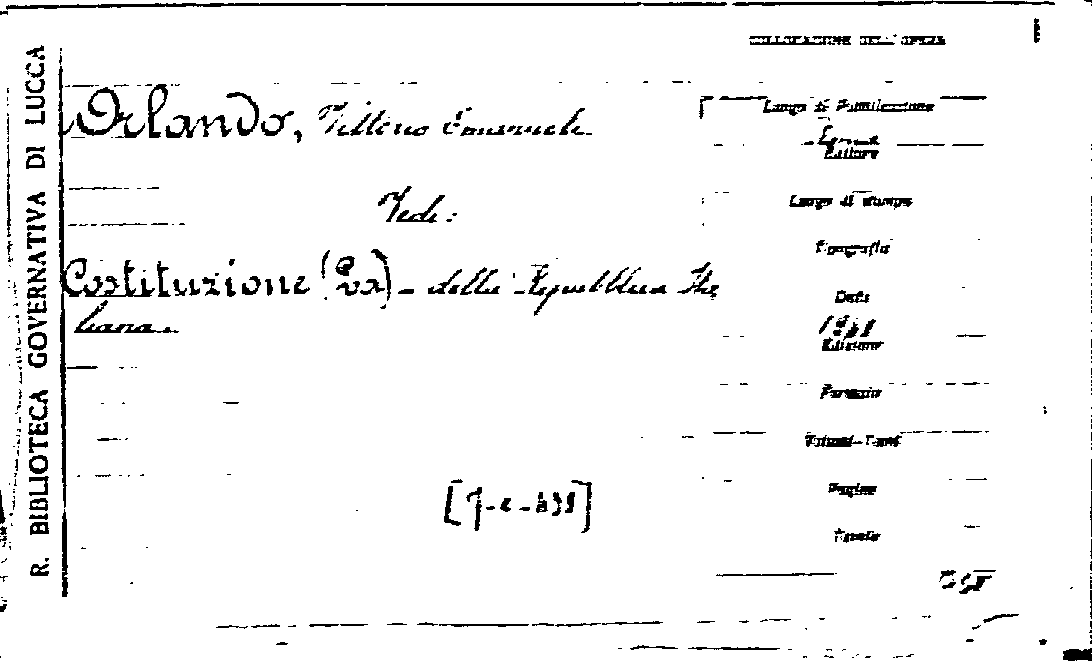 R. BIBLIOTECA GOVERNATIVA DI LUCCA
COLLOCAZIONE DELL'OPERA
Orlando, Vittorio Emanuele
Vedi:
Costituzione (La) - della Repubblica Ita
liana.
Luogo di Pubblicazione
Roma
Editore
Luogo di stampa
Tipografia
Data
Edizione
Formato
Volumi-Tomi
Pagine
Tavole